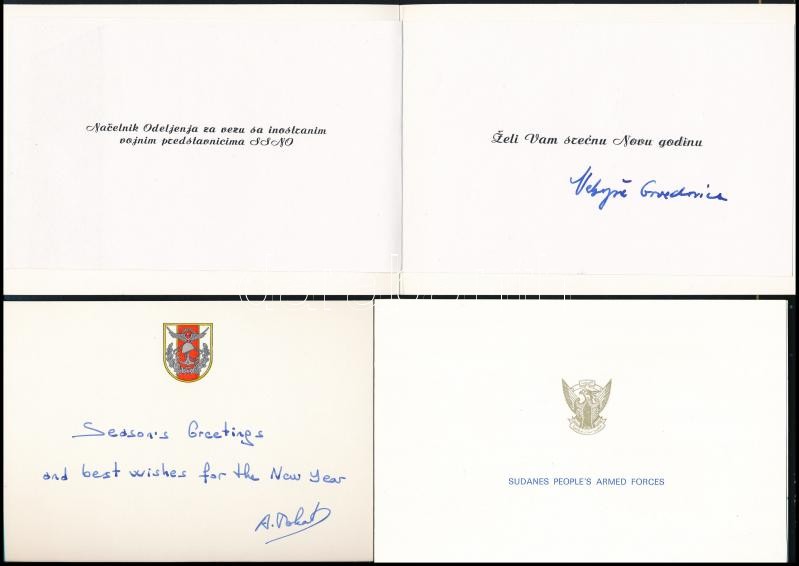 Načelnik Odeljenja za vezu sa inostranim
vojnim predstavnicima SSNO
Želi Vam srećnu Novu godinu
Season's Greetings
and best wishes for the New Year
SUDANES PEOPLE'S ARMED FORCES